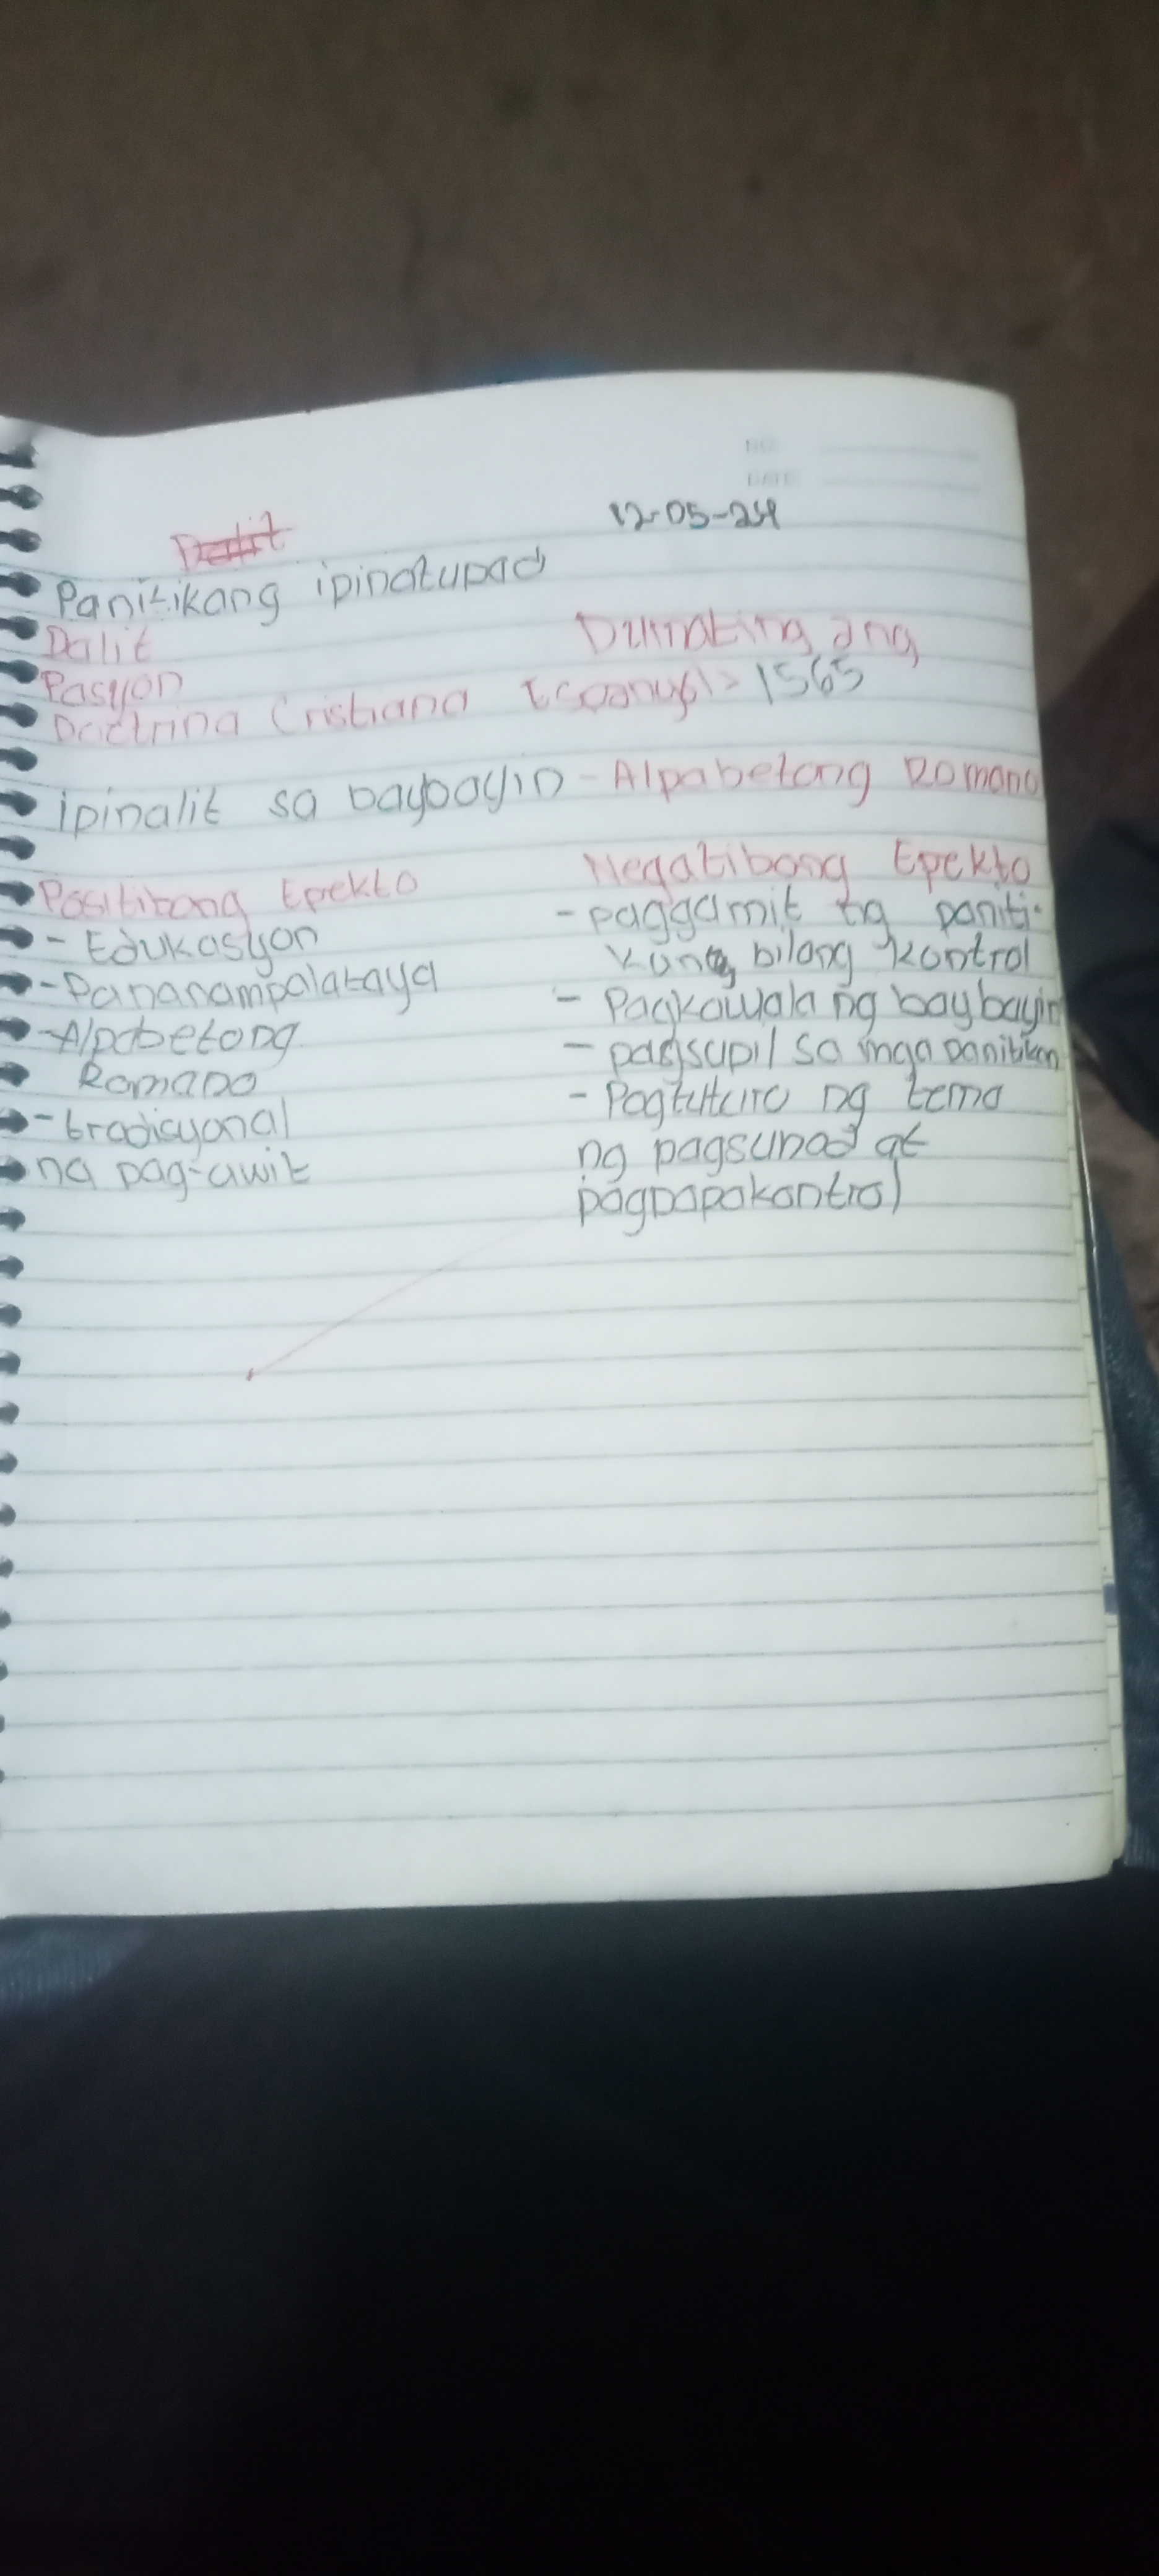 NO.
DATE
12-05-24
Panitikang ipinatupad
Dalit
Dumating ang
Pasyon
Doctrina Cristiana
1565
ipinalit sa baybayin - Alpabetong Romano
Positibong Epekto
Negatibong Epekto
- Edukasyon
- paggamit ng paniti-
kang bilang kontrol
- Pananampalataya
- Pagkawala ng baybayin
- Alpabetong
Romano
- pagsupil sa mga panitikan
- tradisyonal
na pag-awit
- Pagtuturo ng tema
ng pagsunod at
pagpapakontrol